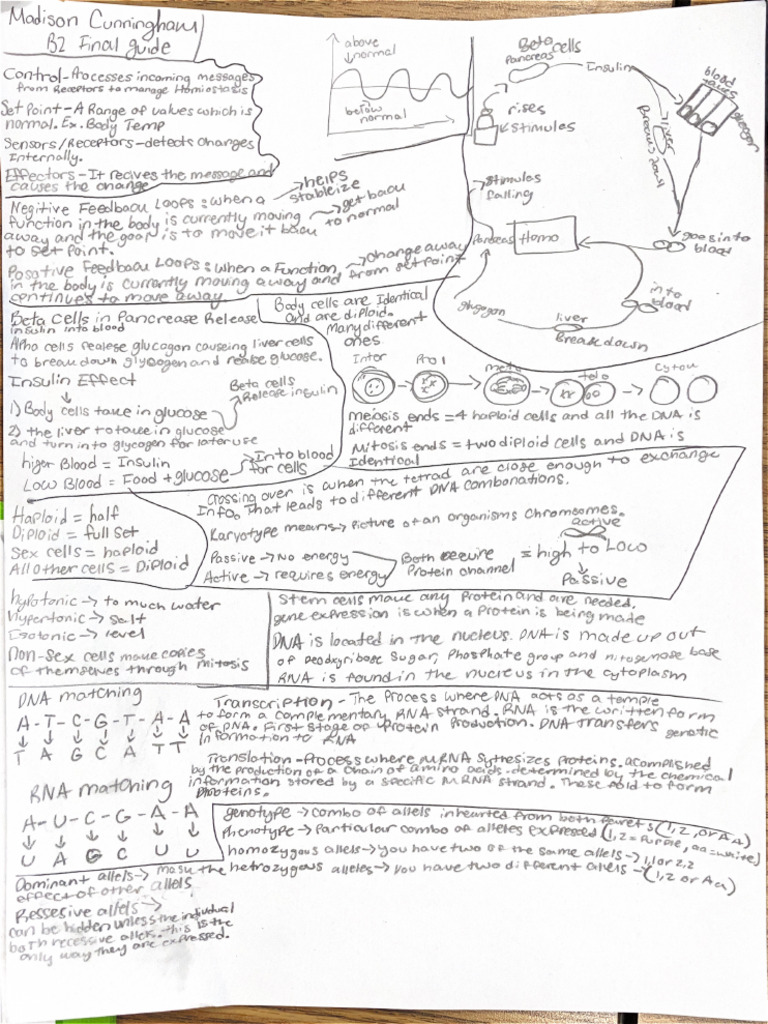 Madison Cunningham
B2 Final guide
Control-Processes incoming messages
from Receptors to manage Homiostasis
Set Point - A Range of values which is
normal. Ex. Body Temp
Sensors/Receptors-detects changes
Internally.
Effectors - It recives the message and
causes the change
above
normal
below
normal
Negitive Feedback Loops: when a
function in the body is currently moving
away and the goal is to move it back
to set point.
helps
stableize
get back
to normal
Posative Feedback Loops: when a Function
in the body is currently moving away and
continues to move away
change away
from set point
Beta cells
Pancreas
Insulin
blood
rises
stimulas
liver
goes into
blood
stimulas
falling
Pancreas
Homo
into
blood
glucogon
liver
Break down
Beta Cells in Pancrease Release
insulin into blood
Alpha cells realese glucagon causeing liver cells
to break down glycogen and realse glucose.
Insulin Effect
1) Body cells take in glucose
2) the liver to take in glucose
and turn into glycogen for later use
Beta cells
Release insulin
higher Blood = Insulin
Low Blood = Food + glucose
Into blood
for cells
Body cells are Identical
and are diploid.
Many different
ones
Inter
Pro
meta
telo
Cytok
Meiosis ends = 4 haploid cells and all the DNA is
different
Mitosis ends = two diploid cells and DNA is
Identical
Haploid = half
Diploid = full set
Sex cells = haploid
All other cells = Diploid
Crossing over is when the tetrad are close enough to exchange
Info. That leads to different DNA combonations.
Karyotype means → Picture of an organisms chromosomes.
Passive → No energy
Active → requires energy
Both require
Protein channel
active
= high to Low
Passive
hypotonic → to much water
Hypertonic → salt
Isotonic → level
Non-sex cells make copies
of themselves through mitosis
Stem cells make any Protein and are needed.
gene expression is when a Protein is being made
DNA is located in the nucleus. DNA is made up out
of deodxyribose sugar, Phosphate group and base
RNA is found in the nucleus in the cytoplasm
DNA matching
A-T-C-G-T-A-A
T A G C A T T
Transcription - The Process where DNA acts as a temple
to form a complementary RNA strand. RNA is the written form
of DNA. First stage of Protein Production. DNA transfers genetic
Information to RNA
Translation - Process where MRNA sythesizes proteins. acomplished
by the production of a chain of amino acids. determined by the chemical
information stored by a specific MRNA strand. These fold to form
Proteins.
RNA matching
A-U-C-G-A-A
U A G C U U
genotype → combo of allels inhearted from both parets (1,2, or Aa)
Phenotype → Particular combo of alleles expressed (1,2 = Purple, aa=white)
homozygous allels → you have two of the same allels → 1,1 or 2,2
hetrozygous alleles → you have two different allels → (1,2 or Aa)
Dominant allels → mask the
effect of other allels
Ressesive allels →
can be hidden unless the individual
both recessive allels. this is the
only way they are expressed.